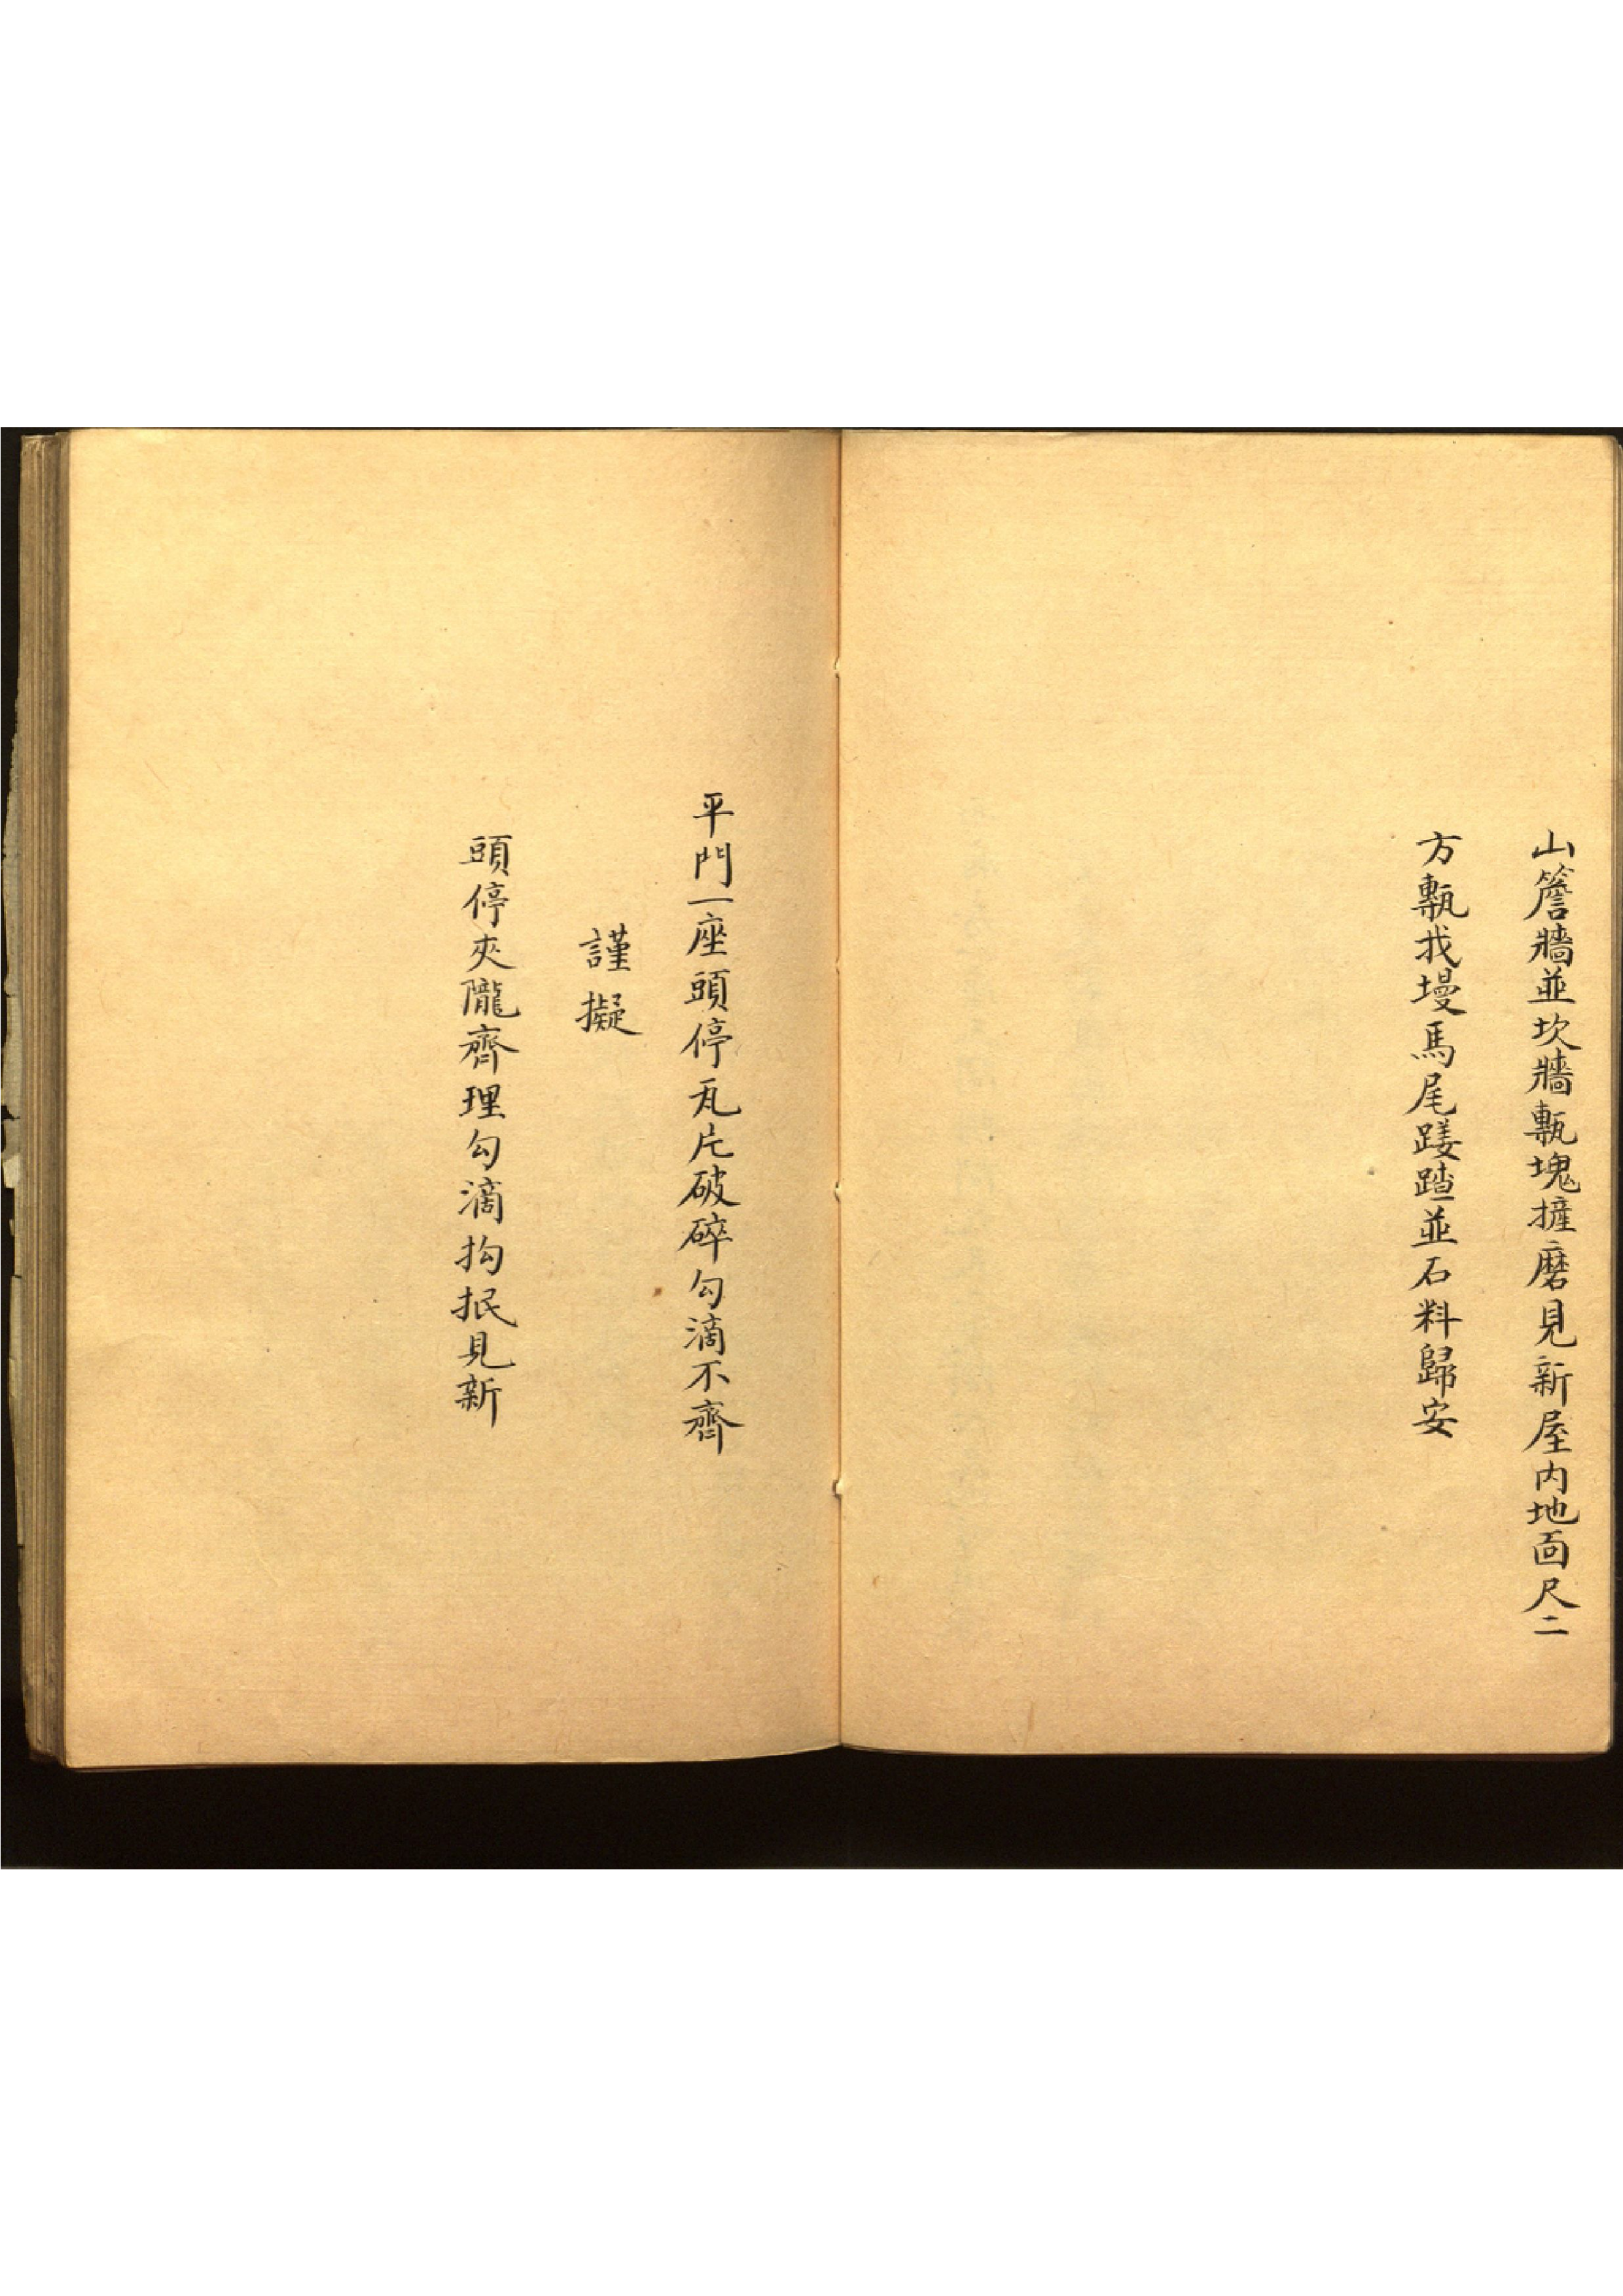 山簷牆並坎牆甎塊摌磨見新屋內地面尺二
方甎找墁馬尾䠡踏並石料歸安
平門一座頭停瓦片破碎勾滴不齊
謹擬
頭停夾隴齊理勾滴抅抿見新